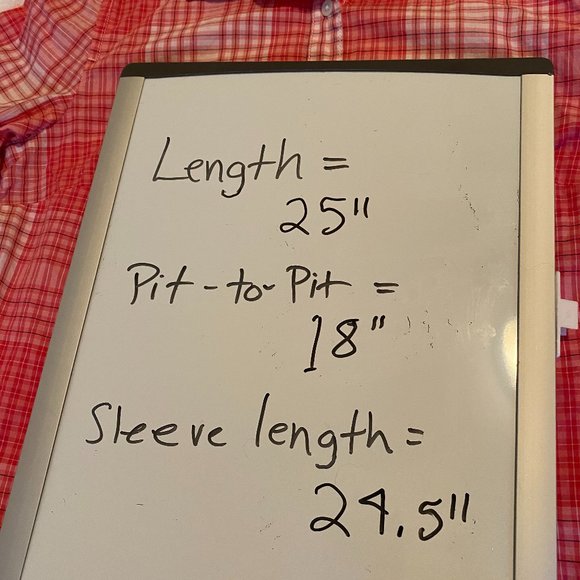 Length =
25"
Pit-to-Pit =
18"
Sleeve length =
24.5"